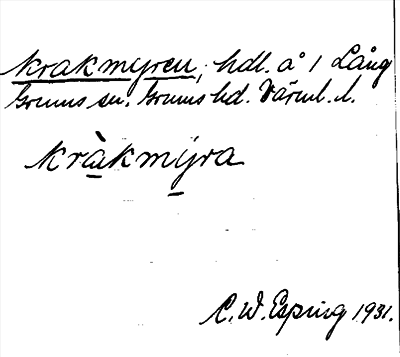 Krakmyren, hdl. å 1 Lång
Grums sn. Grums hd. Värml. l.
kràkmýra
C. W. Esping 1931.